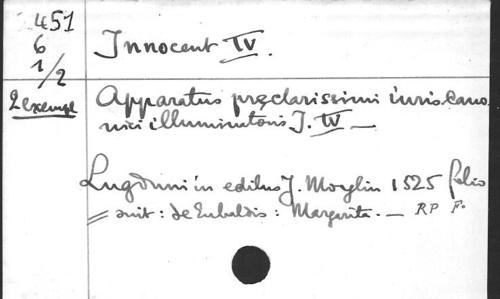 451
6
1/2
2 exempl
Innocent IV.
Apparatus præclarissimi iuris cano
nici illuminatoris J. IV —
Lugduni in edibus J. Moylin 1525 folio
= suit : de Eubaldis : Margarita. — RP F.